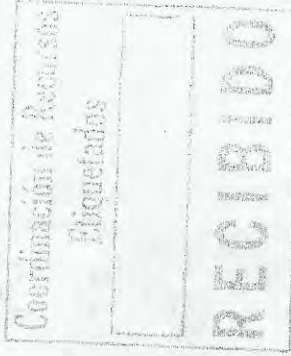 Coordinación de Recursos
Etiquetados
RECIBIDO